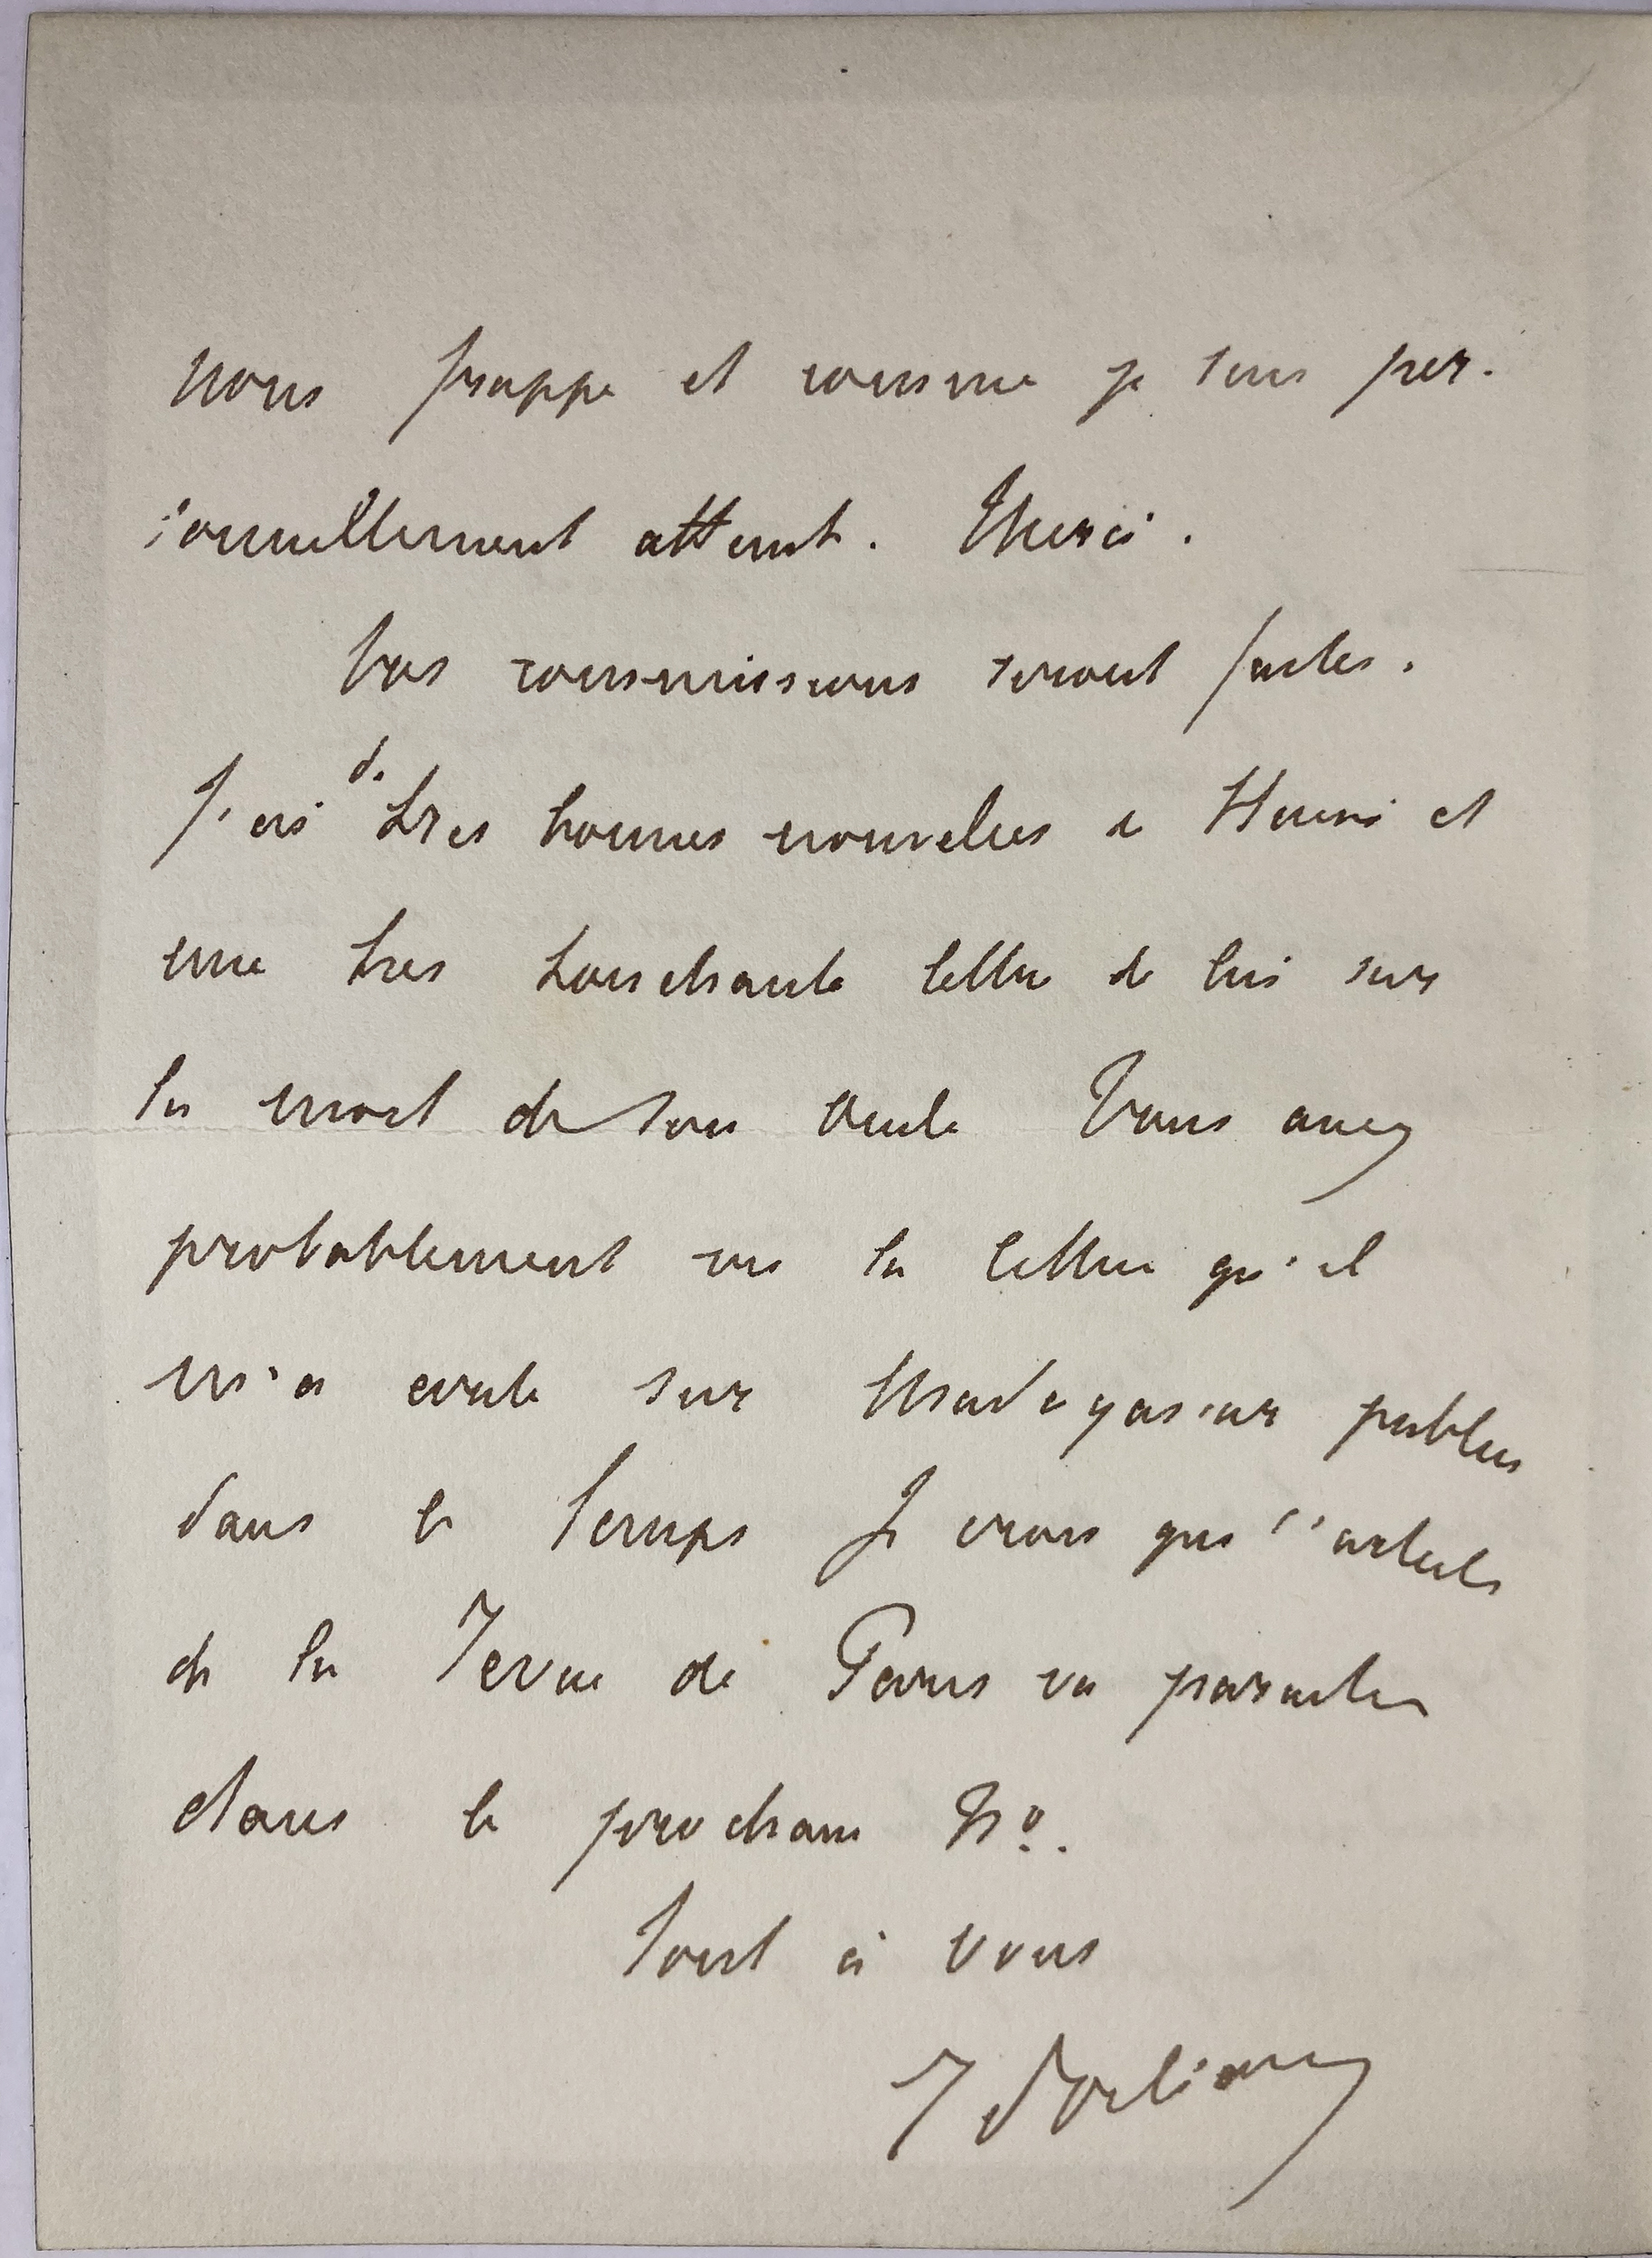 nous frappe et comme je suis per-
sonnellement atteint. Merci.
Vos commissions seront faites.
J'ai de tres bonnes nouvelles de Henri et
une tres touchante lettre de lui sur
la mort de son oncle Vous avez
probablement vu la lettre qu'il
m'a ecrite sur Madagascar publiee
dans le Temps Je crois que l'article
de la Revue de Paris va paraitre
dans le prochain No.
Tout à vous
R d'Orléans